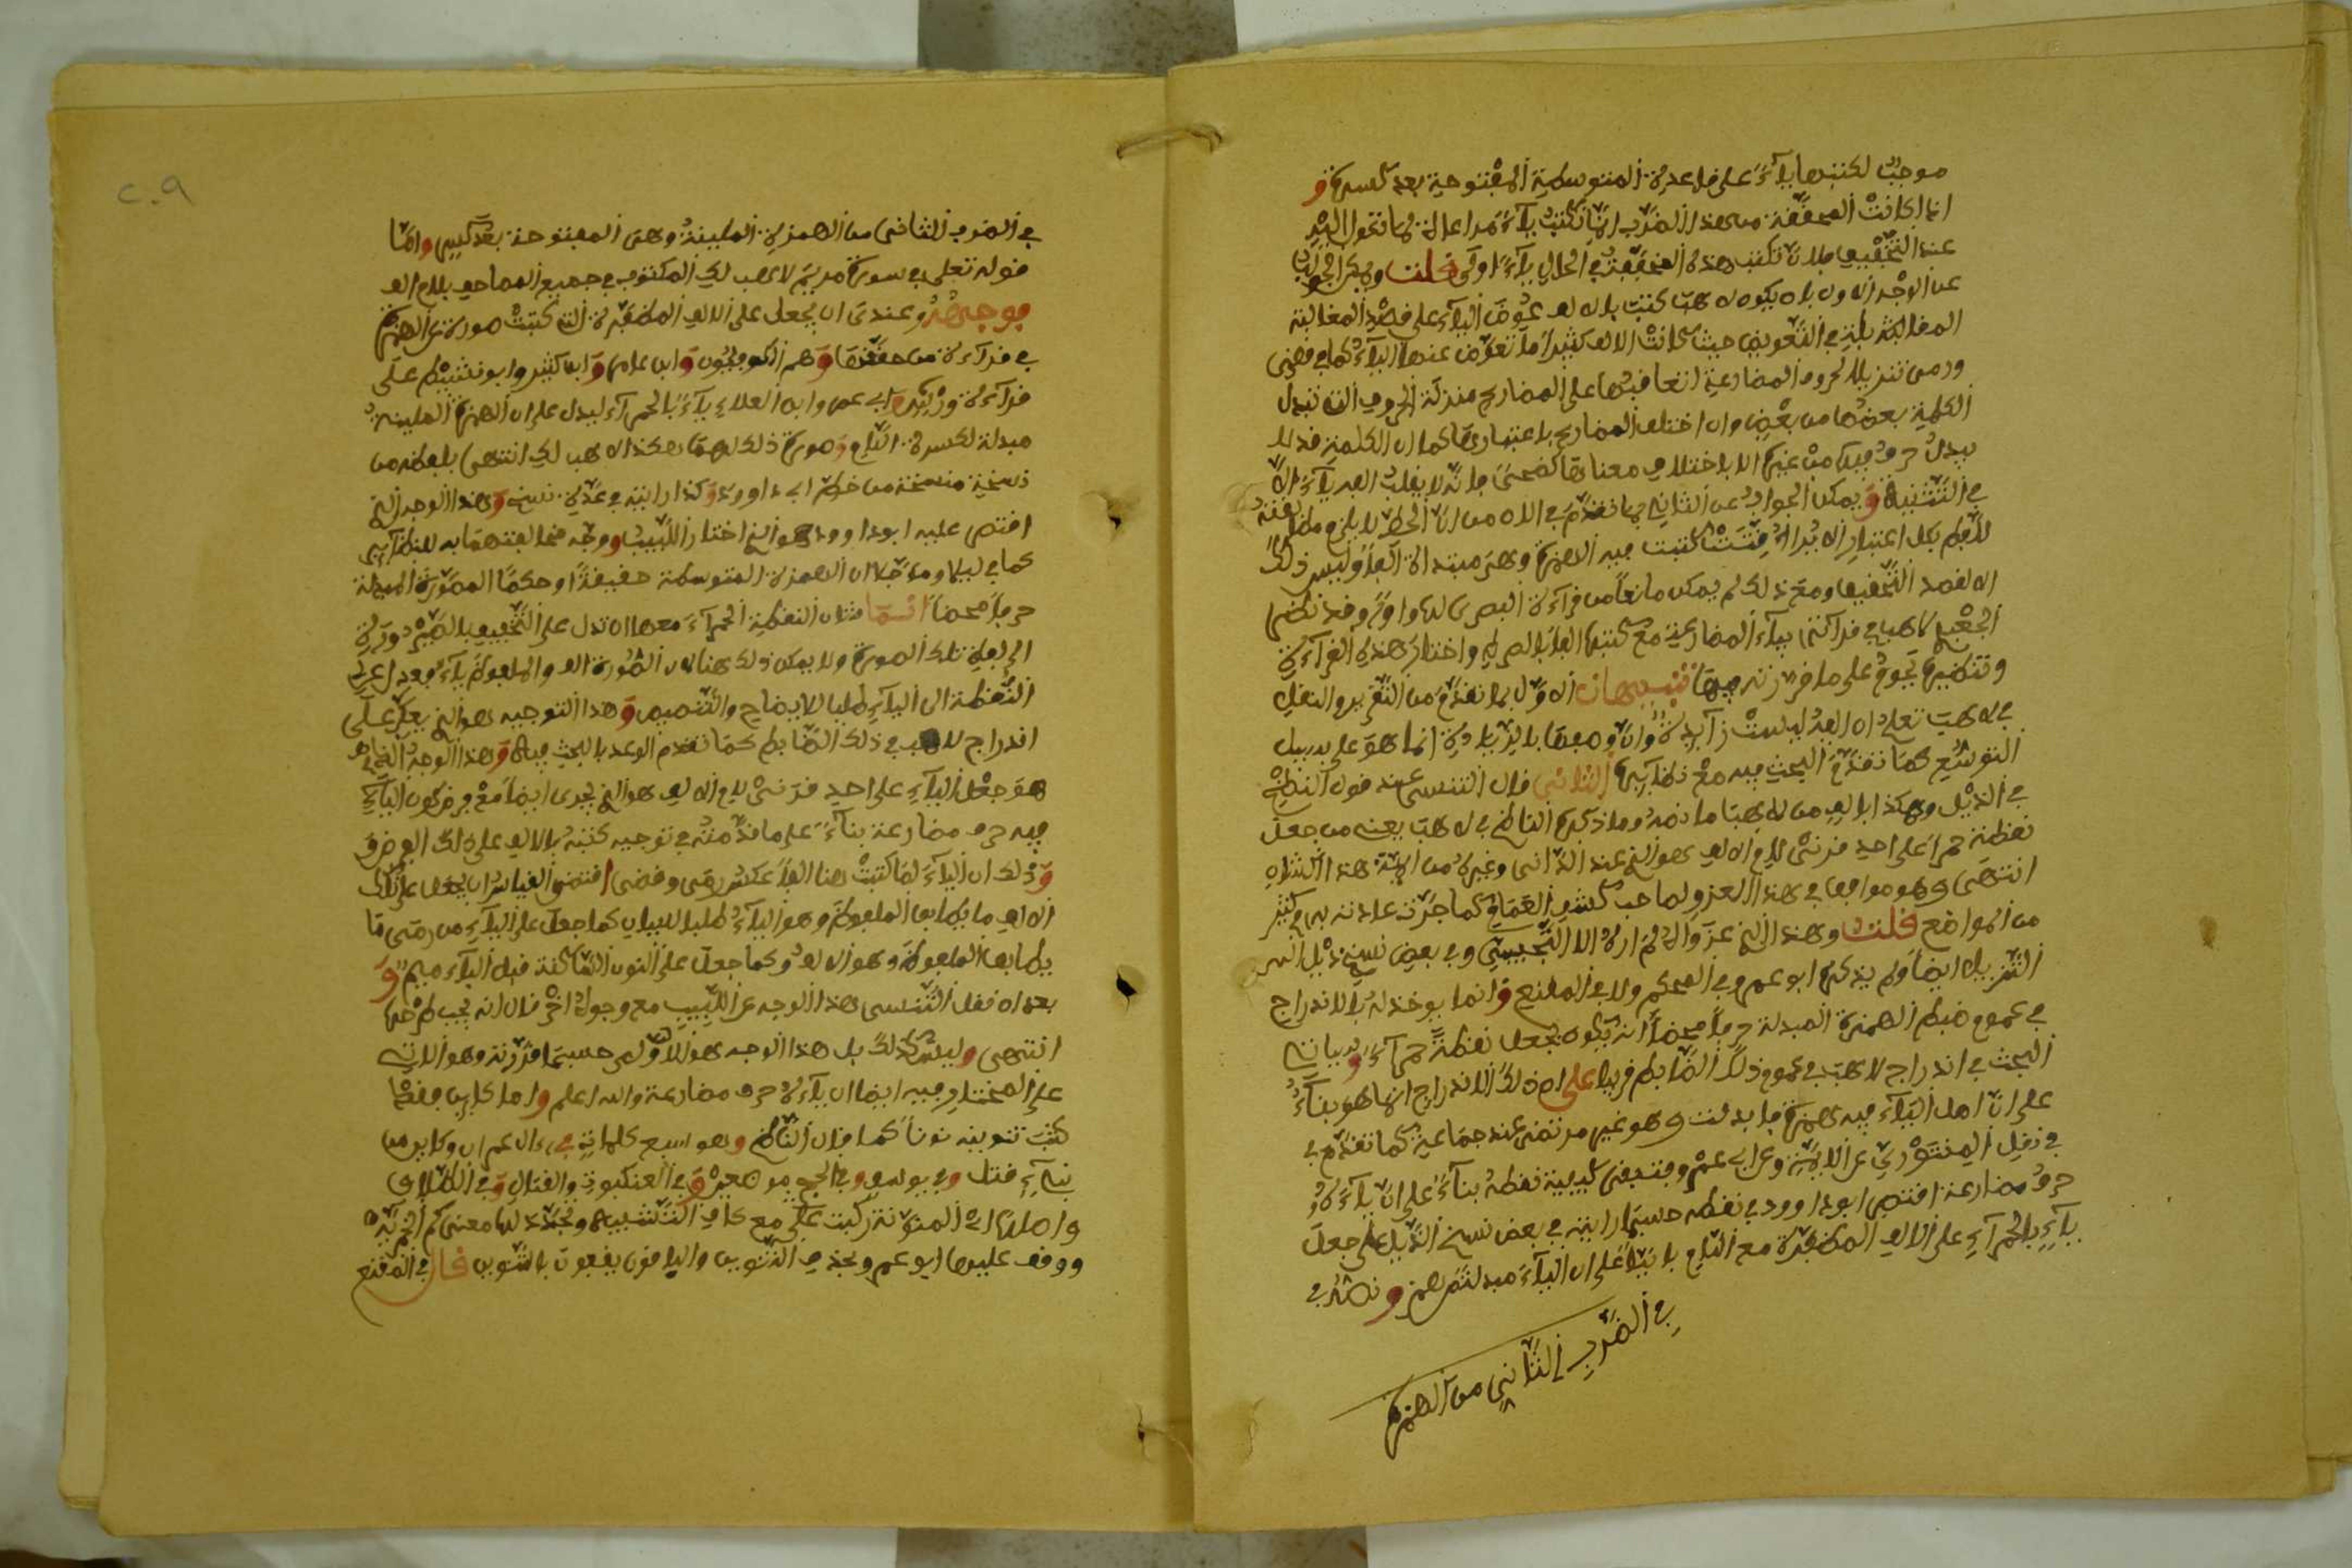 موجبٌ لكتبها ياءً على قاعدة المتوسطة المفتوحة بعد كسرة و
انما كانت المحققة من هذا الضرب انما تكتب ياءً مراعاة لما تحول اليه
عند التخفيف فلان تكتب هذه المخففة في الحال ياءً اولى قلت ويمكن الجواب
عن الوجه الاول بان يكون لاهب كتبت بالالف عوض الياء على قصد المغالبة
المقابلة في التعويض حيث كانت الالف كثيرا ما تعوض عنها الياء كما في قضى
ورمى تنزيلا لحروف المضارعة لتعاقبها على المضارع منزلة الحروف التي تبدل
الكلمة بعضها من بعض وان اختلف المضارع باعتبارها كما ان الكلمة قد لا
يبدل حرف فيها من غيره الا باختلاف معناها كضحى فانه لا يقلب الفه ياء الا
في التثنية ويمكن الجواب عن الثاني بما تقدم في الان من ان الخط لا يلزم مطابقته
للفظ بكل اعتبار الا ترى أفتت كتبت فيه الهمزة وهي مبتدأة الفا وليس ذلك
الا لقصد التخفيف ومع ذلك لم يمكن مانعا من قراءة البصرى لها واوا وقد نظم
الجعبري لاهب في قراءتها بياء المضارعة مع كتبها الفا بالصراط واختار هذه القراءة
وتنظيره يجري على ما قررته فيها تنبيهان الاول بما تقدم من التقرير والنقل
في لاهب تعلم ان الفه ليست زايدة وان وصفها بالزيادة انما هو على سبيل
التوسع كما تقدم البحث فيه مع نظايره الثاني قال التنسي عند قول الناظم
في الذيل وهكذا بالف من لاهبا ما نصه وما ذكره الناظم في لاهب يعني من جعل
نقطة حمرا على احد قرني لام الالف هو الذي عند الداني وغيره من الايمة هذا الشان
انتهى وهو موافق في هذا العزو لصاحب كشف الغمام كما جرت عادته به في كثير
من المواضع قلت وهذا الذي عزوا له لم اره الا للتجيبي وفي بعض نسخ ذيل
التنزيل ايضا ولم يذكره ابو عمرو في المحكم ولا في المقنع وانما يوخذ له بالاندراج
في عموم ضبط الهمزة المبدلة حرفا محضا انه يكون بجعل نقطة حمراء وسياتي
البحث في اندراج لاهب في عموم ذلك الضابط قريبا على ان ذلك الاندراج انما هو بناء
على ان اصل الياء فيه همزة فابدلت وهو غير مرتضى عند جماعة كما تقدم في
في نقل المنتوري عن اللابية وعن ابي عمرو ومقتضى كيفية نقطه بناء على ان ياءه
حرف مضارعة اقتصر ابو داوود في نقطه حسبما رايته في بعض نسخ الذيل على جعل
ياء بالحمراء على الالف المظفرة مع اللام بانيا على ان الياء مبدلة من همز ونصه في
في الضرب الثاني من الهمزة
٢٠٩
في الضرب الثاني من الهمزة الملينة وهي المفتوحة بعد كسر واما
قوله تعلى في سورة مريم لاهب لك المكتوب في جميع المصاحف بلام الف
فوجهه وعندي ان يجعل على الالف المظفرة التي كتبت صورة للهمزة
في قراءة من حققها وهم الكوفيون وابن عامر وابن كثير وابو نشيط على
قراءة ورش وابي عمرو ابن العلاء ياء بالحمراء ليدل على ان الهمزة الملينة
مبدلة لكسرة اللام وصورة ذلك لهما هكذا لاهب لك انتهى بلفظه من
نسخة منسخة من خط ابي داوود وكذا رايته في عدة نسخ وهذا الوجه الذي
اقتصر عليه ابو داوود هو الذي اختار اللبيب ووجه مخالفتهما به لنظايره
كما في ليلا وموجلا ان الهمزة المتوسطة حقيقة او حكما المصورة المبدلة
حرفا محضا انما مثلن النقطة الحمراء معها ان تدل على التخفيف بالتغيير دون
الالف تلك الصورة ولا يمكن ذلك هنا لان الصورة الف والملفوظ ياء فعدل عن
النقطة الى الياء طلبا للايضاح والتنصيص وهذا التوجيه هو الذي يعكر على
اندراج لاهب في ذلك الضابط كما تقدم الوعد بالبحث فيه وهذا الوجه الذي
هو جعل الياء على احد قرني لام الالف هو الذي يجرى ايضا مع فرض كون الياء
فيه حرف مضارعة بناء على ما قدمته في توجيه كتبه بالالف على ذلك الفرض
وذلك ان الياء لما كتبت هنا الفا عكس رمى وقضى اقتضى القياس ان يجعل على تلك
الالف ما يطابق الملفوظ وهو الياء طلبا للبيان كما جعل على الياء من رمى ما
يطابق الملفوظ وهو الالف وكما جعل على النون الساكنة قبل الياء ميم و
بعد ان نقل التنسي هذا الوجه عن اللبيب مع وجوه اخر قال انه يجب طرحها
انتهى وليس كذلك بل هذا الوجه هو الاولى حسبما قررته وهو اللاتي
على المختار فيه ايضا ان ياءه حرف مضارعة والله اعلم واما كاين فقد
كتبت تنوينه نونا كما قال الناظم وهو سبع كلمات في ءال عمران وكاين من
نبيء قتل وفي يوسف وفي الحج موضعين وفي العنكبوت والقتال وفي الطلاق
واصلها اي المنونة ركبت على مع كاف التشبيه وتجدد لها معنى كم الخبرية
ووقف عليها ابو عمرو بحذف التنوين والباقون يقفون بالتنوين قال في المقنع